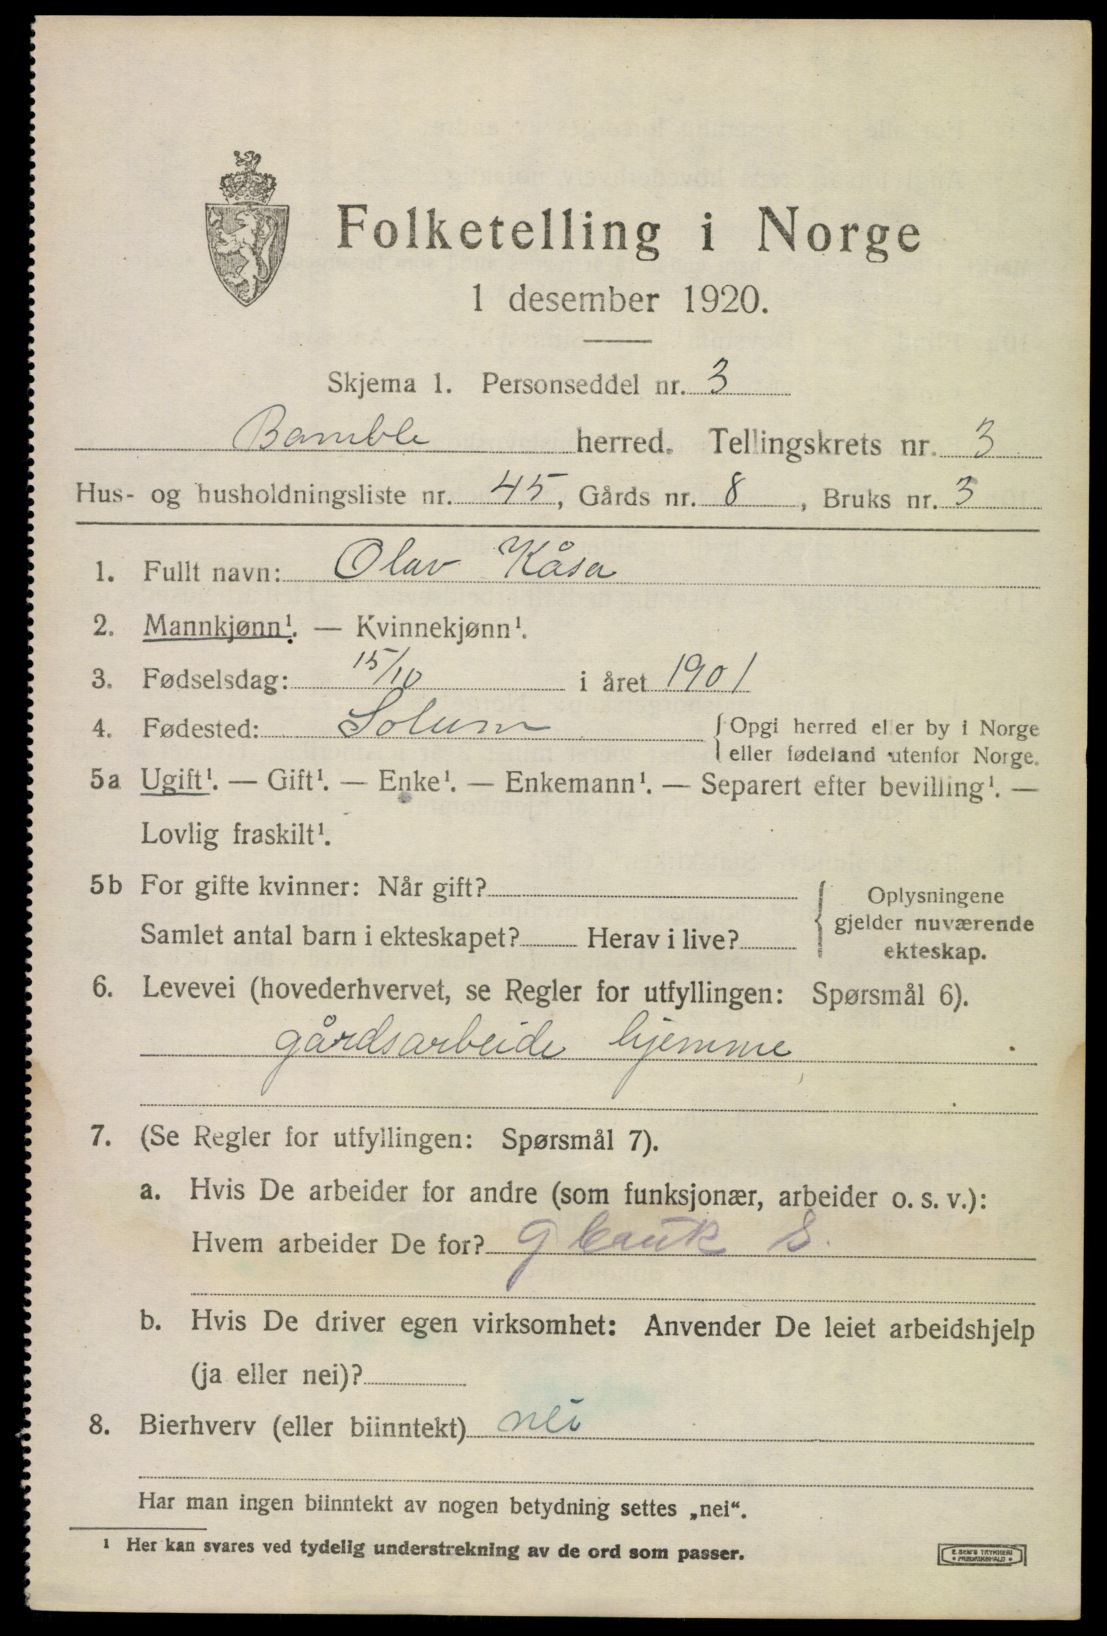 Folketelling i Norge
1 desember 1920.
Skjema 1. Personseddel nr. 3
Bamble herred. Tellingskrets nr. 3
Hus- og husholdningsliste nr. 45, Gårds nr. 8, Bruks nr. 3
1. Fullt navn: Olav Kåsa
2. Mannkjønn¹. — Kvinnekjønn¹.
3. Fødselsdag: 15/10 i året 1901
4. Fødested: Solum { Opgi herred eller by i Norge
eller fødeland utenfor Norge.
5a Ugift¹. — Gift¹. — Enke¹. — Enkemann¹. — Separert efter bevilling¹. —
Lovlig fraskilt¹.
5b For gifte kvinner: Når gift?
Samlet antal barn i ekteskapet? Herav i live?
Oplysningene
gjelder nuværende
ekteskap.
6. Levevei (hovederhvervet, se Regler for utfyllingen: Spørsmål 6).
gårdsarbeide hjemme
7. (Se Regler for utfyllingen: Spørsmål 7).
a. Hvis De arbeider for andre (som funksjonær, arbeider o. s. v.):
Hvem arbeider De for? G S.
b. Hvis De driver egen virksomhet: Anvender De leiet arbeidshjelp
(ja eller nei)?
8. Bierhverv (eller biinntekt) nei
Har man ingen biinntekt av nogen betydning settes „nei“.
¹ Her kan svares ved tydelig understrekning av de ord som passer.